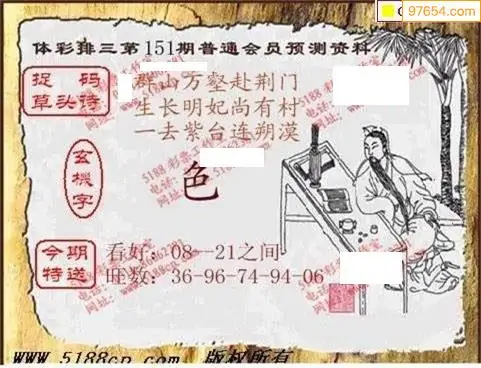 97654.com
体彩排三第151期普通会员预测资料
捉码
草头诗
群山万壑赴荆门
生长明妃尚有村
一去紫台连朔漠
玄機字
色
今期
特送
看好:08--21之间
旺数:36-96-74-94-06
www.5188cp.com 版权所有